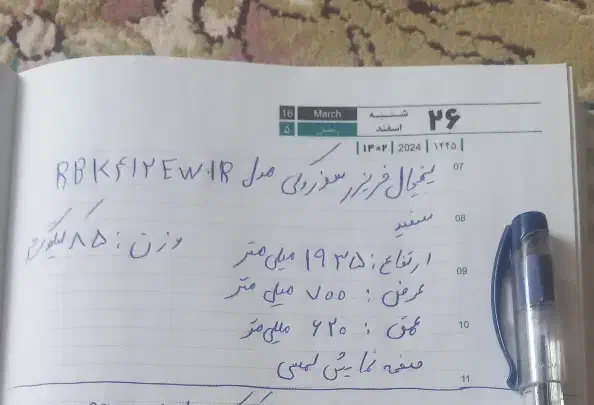 ۲۶
شنبه
اسفند
March 16
رمضان ۵
۱۴۰۲ | 2024 | ۱۴۴۵
07
یخچال فریزر سوزوکی مدل RBK412EW1R
08
سفید
ارتفاع: ۱۹۳۵ میلی متر
وزن: ۸۵ کیلوگرم
09
عرض: ۷۰۰ میلی متر
10
عمق: ۶۲۰ میلی متر
صفحه نمایش لمسی
11